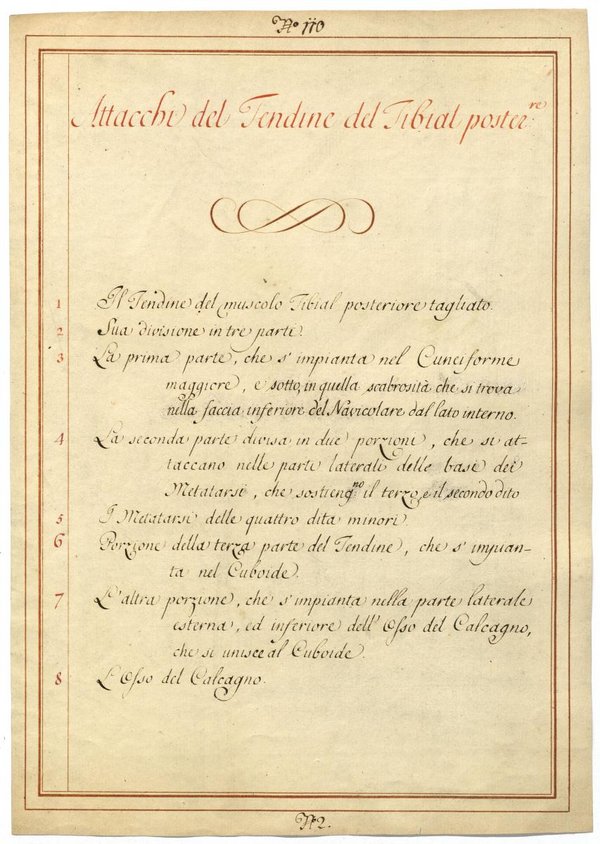 N.o 110
Attacchi del Tendine del Tibial poster.re
1 Il Tendine del muscolo Tibial posteriore tagliato.
2 Sua divisione in tre parti.
3 La prima parte, che s'impianta nel Cuneiforme
maggiore, e sotto, in quella scabrosità che si trova
nella faccia inferiore del Navicolare dal lato interno.
4 La seconda parte divisa in due porzioni, che si at-
taccano nelle parti laterali delle basi dei
Metatarsi, che sostieng.no il terzo, e il secondo dito
5 I Metatarsi delle quattro dita minori.
6 Porzione della terza parte del Tendine, che s'impian-
ta nel Cuboide.
7 L'altra porzione, che s'impianta nella parte laterale
esterna, ed inferiore dell'Osso del Calcagno,
che si unisce al Cuboide.
8 L'Osso del Calcagno.
N.2.